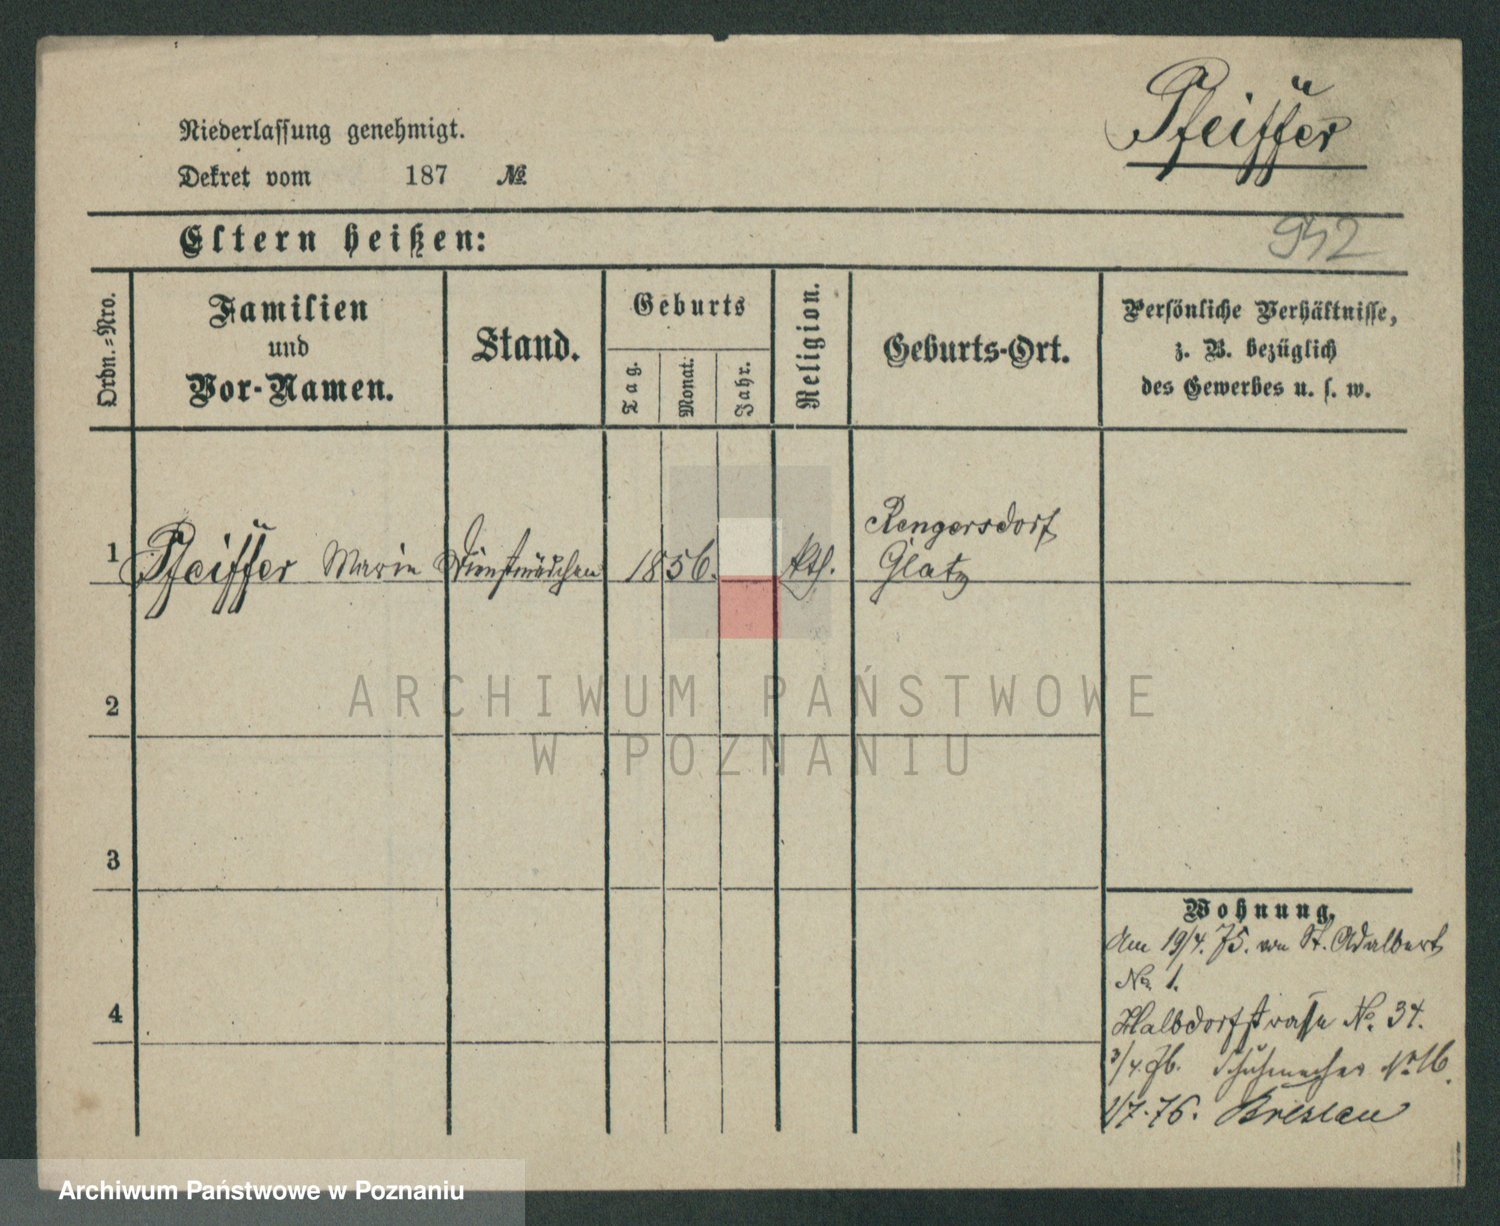 Pfeiffer
Niederlassung genehmigt.
Dekret vom 187 №
942
Eltern heißen:
Ordn.=Nro.
Familien
und
Vor-Namen.
Stand.
Geburts
Tag.
Monat.
Jahr.
Religion.
Geburts-Ort.
Persönliche Verhältnisse,
z. B. bezüglich
des Gewerbes u. s. w.
1 Pfeiffer Marie Dienstmädchen 1856. kth. Rengersdorf
Glatz
2
3
4
Wohnung.
Am 19/4. 75. von St. Adalbert
No 1.
Halbdorfstrasse No. 34.
3/4. 76. Schuhmacher No 16.
1/7. 76. Breslau
ARCHIWUM PAŃSTWOWE
W POZNANIU
Archiwum Państwowe w Poznaniu